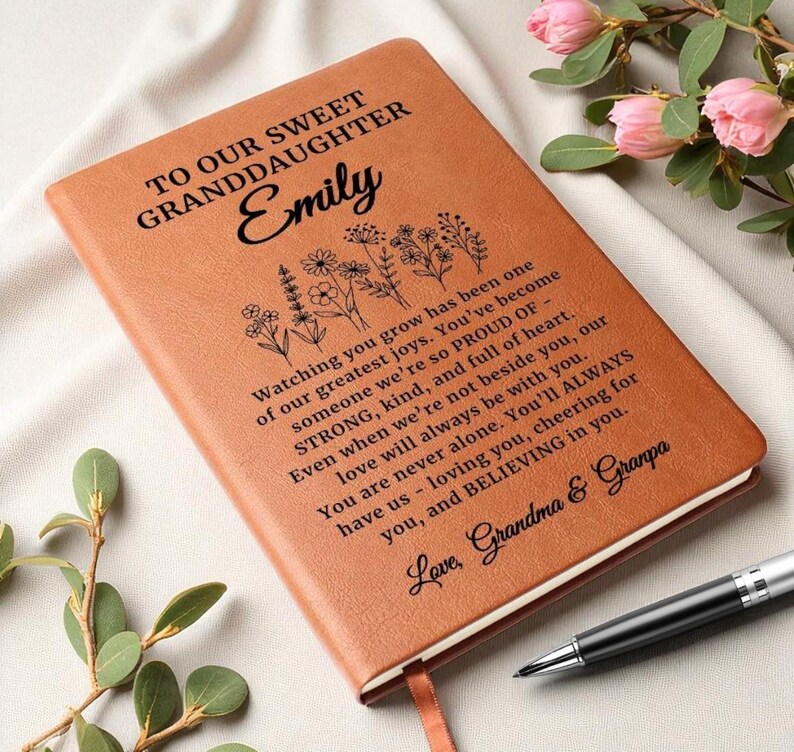 TO OUR SWEET
GRANDDAUGHTER
Emily
Watching you grow has been one
of our greatest joys. You've become
someone we're so PROUD OF –
STRONG, kind, and full of heart.
Even when we're not beside you, our
love will always be with you.
You are never alone. You'll ALWAYS
have us - loving you, cheering for
you, and BELIEVING in you.
Love, Grandma & Granpa